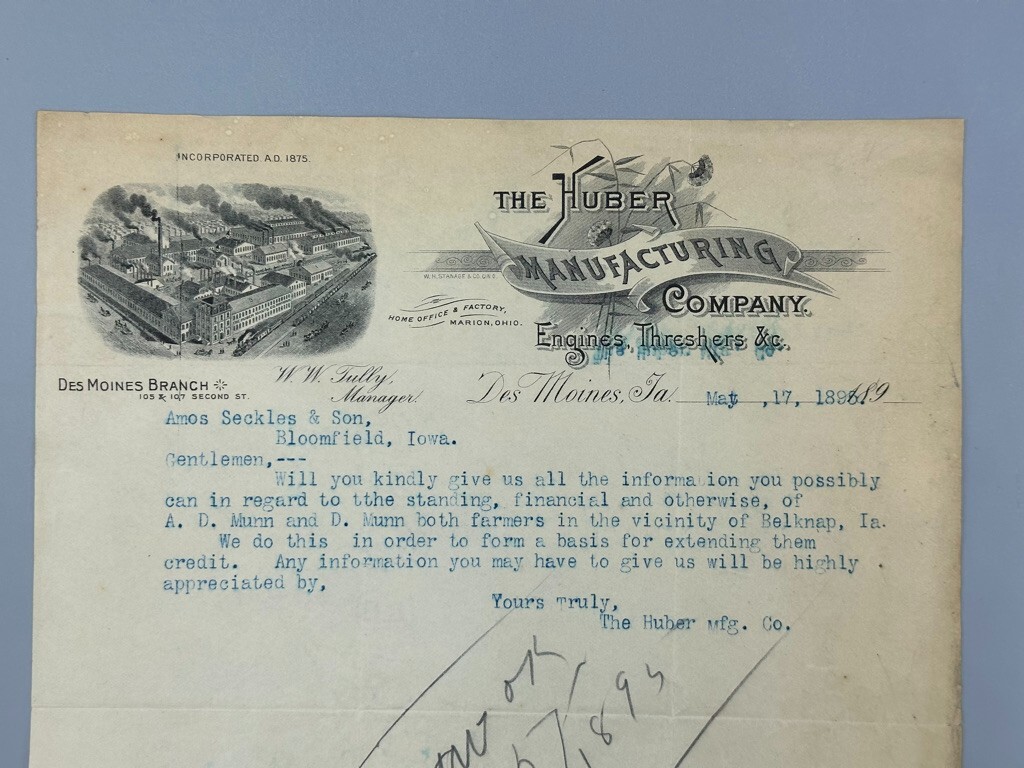 INCORPORATED A.D. 1875.
THE HUBER
MANUFACTURING
COMPANY.
W.H. STANAGE & CO. CIN. O.
HOME OFFICE & FACTORY,
MARION, OHIO.
Engines, Threshers &c.
DES MOINES BRANCH
105 & 107 SECOND ST.
W. W. Tully,
Manager.
Des Moines, Ia. May ,17, 1893. 189
Amos Seckles & Son,
Bloomfield, Iowa.
Gentlemen,---
Will you kindly give us all the information you possibly
can in regard to tthe standing, financial and otherwise, of
A. D. Munn and D. Munn both farmers in the vicinity of Belknap, Ia.
We do this in order to form a basis for extending them
credit. Any information you may have to give us will be highly
appreciated by,
Yours Truly,
The Huber Mfg. Co.
ok
1893